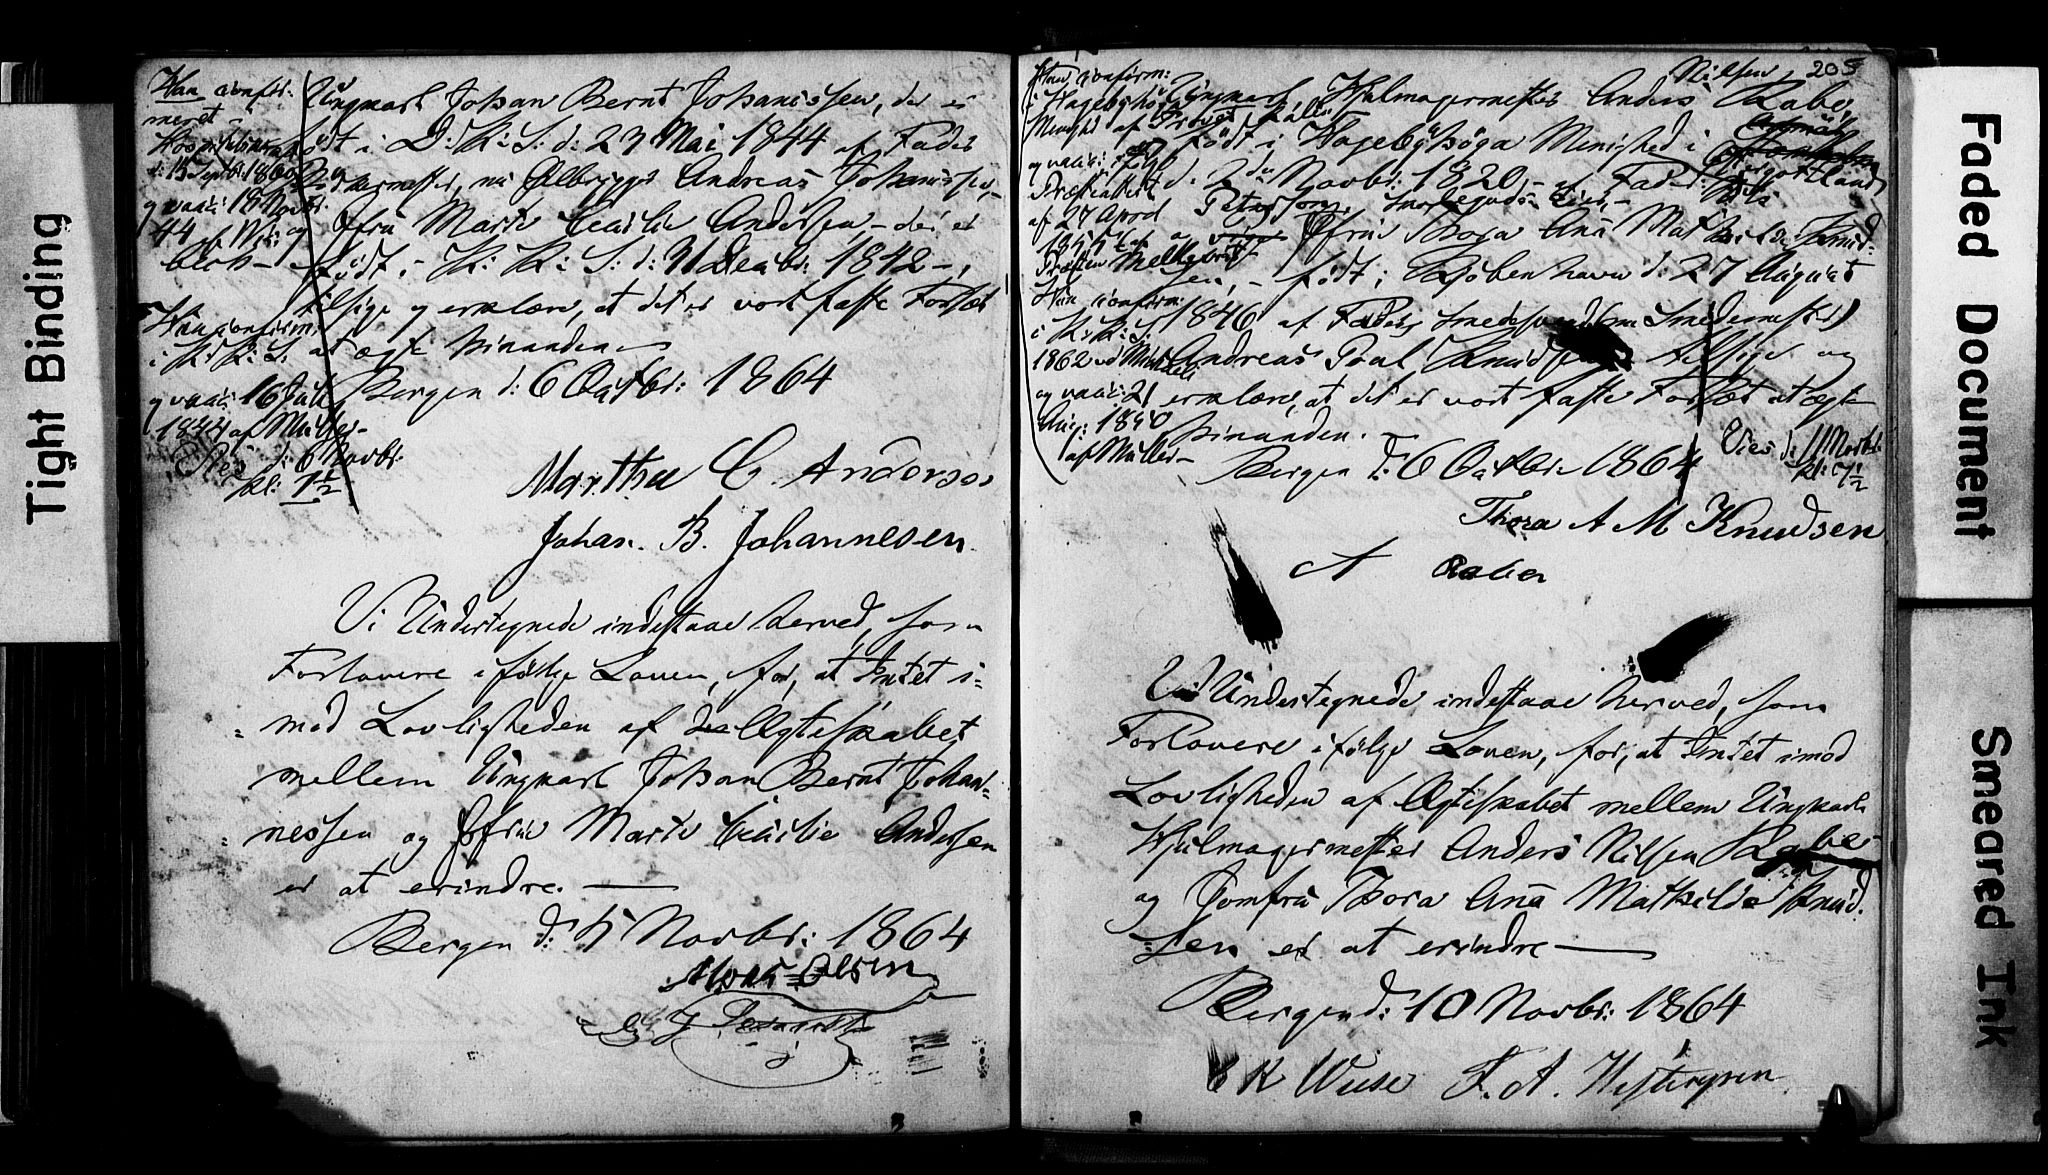 Tight Binding
Han confir-
meret i
d: 15 Septbr: 1860
og vacc: 18 Novbr.
44 af
Hun confirm.
i K: K: S.
og vacc: 16 Juli
1844 af Müller -
Vies d: 6 Novbr.
kl: 7½
Ungkarl Johan Bernt Johannssen, der er
født i D: K: S: d: 23 Mai 1844 af Fader
nu Ølbrygger Andreas Johannssen,
og Jfru Marte Cecilie Andersen, - der er
født i K: K: S: d: 1842 -,
tilsige og erklære, at det er vort faste Forsæt
at ægte hinanden -
Bergen d: 6 Octbr: 1864
Martha C. Andersen
Johan. B. Johannesen.
Vi Undertegnede indestaae herved, som
Forlovere ifølge Loven, for, at Intet i-
mod Lovligheden af Ægteskabet
mellem Ungkarl Johan Bernt Johan-
nessen og Jfru Marte Cecilie Andersen
er at erindre. -
Bergen d: 5 Novbr: 1864
Olsen
Han confirm:
i Hagebyhöga
Menighd af Provst Kallin
og vacc:
Præstattest
af 27 April
1855 af
Præsten Mellqvist
Hun confirm:
i K: K: S.
1862
og vacc: 21
Aug: 1840
af Müller -
Nilsen 205
Ungkarl, Hjulmagermester Anders Rabe,
født i Hagebyhöga Menighed i
Östergotland
d. 2den Novbr: 1820, - af Fader: Nils
Peterson,
og Jfru Thora Ana Mathilde Knud-
sen, - født i Kjøbenhavn d: 27 August
1846 af Fader, Smedesvend (nu Smedemester)
Andreas Poul Knudsen, tilsige og
erklære, at det er vort faste Forsæt at ægte
hinanden. -
Bergen d: 6 Octbr: 1864
Vies d: 11 Novbr:
kl: 7½
Thora A M Knudsen
A Rabe
Vi Undertegnede indestaae herved, som
Forlovere ifølge Loven, for, at Intet imod
Lovligheden af Ægteskabet mellem Ungkarl
Hjulmagermester Anders Nilsen Rabe
og Jomfru Thora Ana Mathilde Knud-
sen er at erindre -
Bergen d: 10 Novbr: 1864
K Wiese F. A. Westergren
Faded Document
Smeared Ink